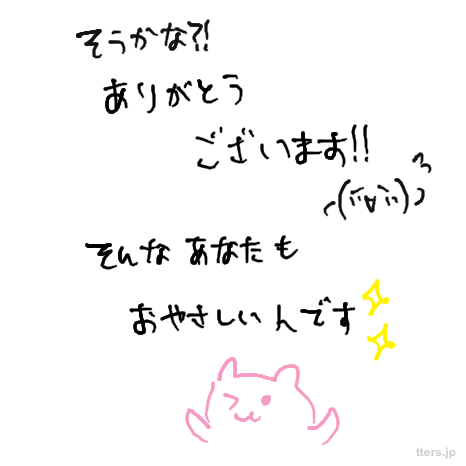 そうかな?!
ありがとう
ございます!!
そんなあなたも
おやさしいんです
tters.jp